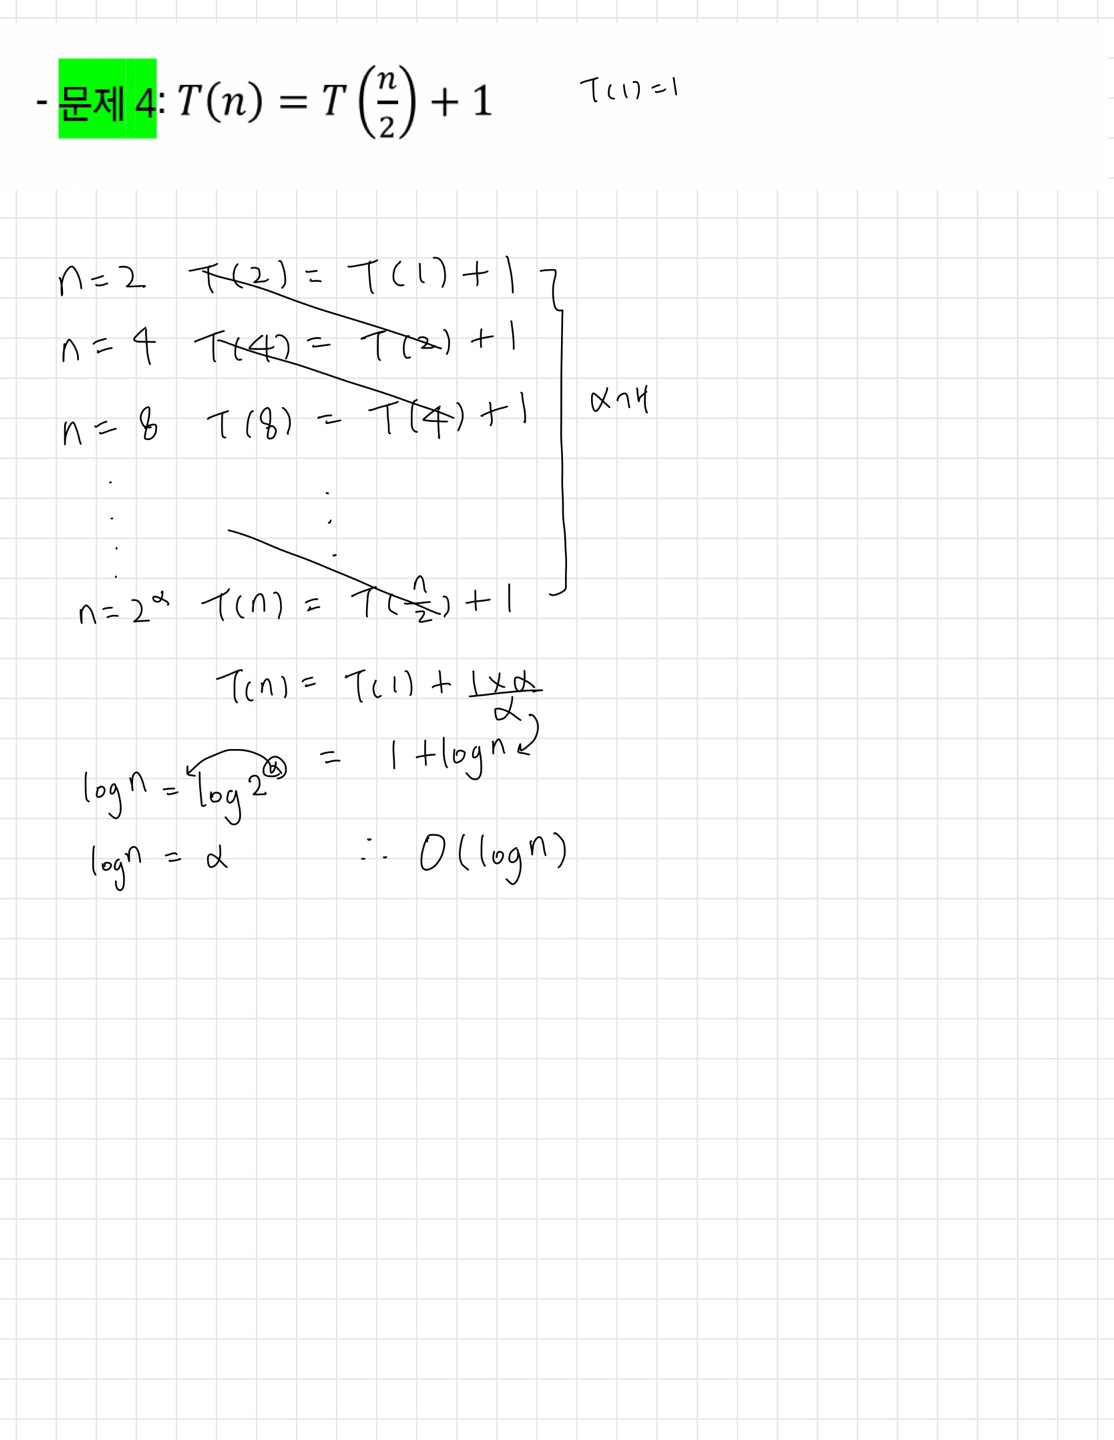 - 문제 4: T(n) = T(n/2) + 1 T(1)=1
n=2 T(2) = T(1)+1
n=4 T(4) = T(2)+1
n=8 T(8) = T(4)+1 α개
n=2^α T(n) = T(n/2)+1
T(n) = T(1) + 1×α
α
= 1+logn
logn = log2^α
logn = α ∴ O(logn)